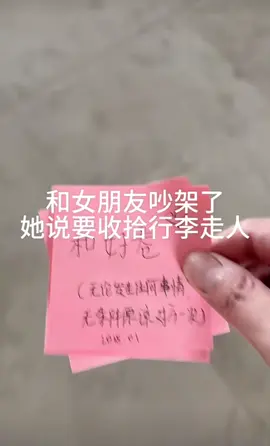 和女朋友吵架了
她说要收拾行李走人
和好卷
(无论发生任何事情
无条件原谅对方一次)